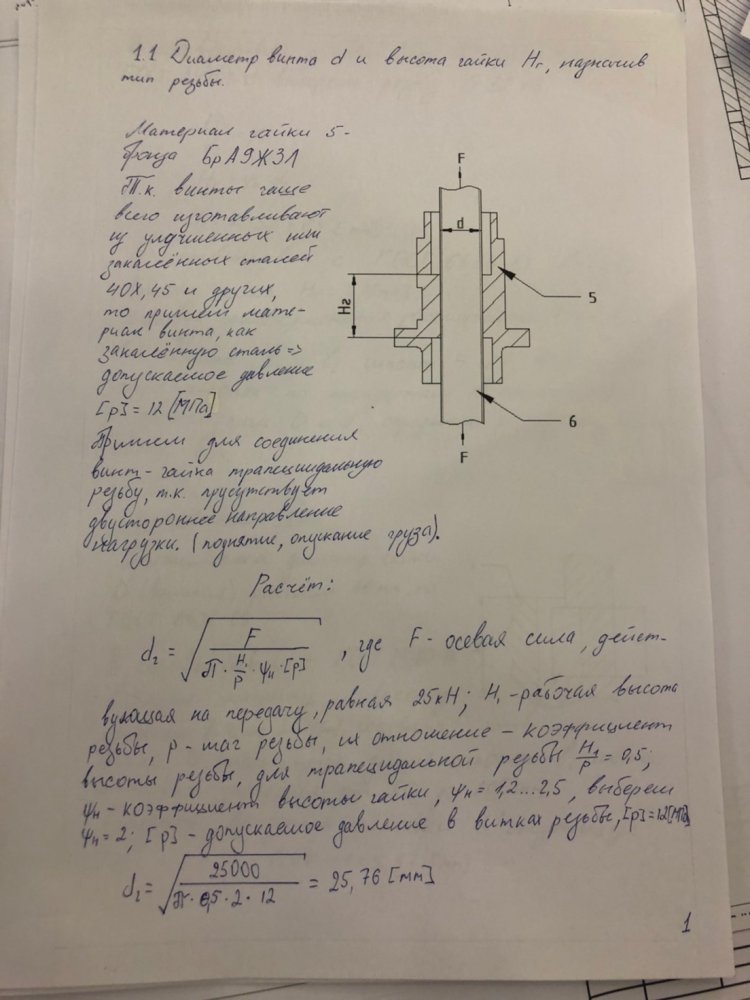 1.1 Диаметр винта d и высота гайки Hг, назначив
тип резьбы.
Материал гайки 5-
бронза БрА9Ж3Л
Т.к. винты чаще
всего изготавливают
из улучшенных или
закалённых сталей
40Х, 45 и других,
то примем мате-
риал винта, как
закалённую сталь =>
допускаемое давление
[p] = 12 [МПа]
Примем для соединения
винт-гайка трапецеидальную
резьбу, т.к. присутствует
двустороннее направление
нагрузки. (поднятие, опускание груза).
F
d
Hг
5
6
F
Расчёт:
d₂ = √(F / (π · H₁/p · ψн · [p])) , где F - осевая сила, дейст-
вующая на передачу, равная 25кН; H₁ - рабочая высота
резьбы, p - шаг резьбы, их отношение - коэффициент
высоты резьбы, для трапецидальной резьбы H₁/p = 0,5;
ψн - коэффициент высоты гайки, ψн = 1,2...2,5, выберем
ψн = 2; [p] - допускаемое давление в витках резьбы, [p]=12[МПа]
d₂ = √(25000 / (π · 0,5 · 2 · 12)) = 25,76 [мм]
1